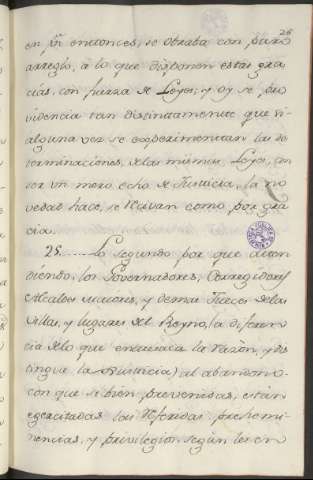 26
en pñ. entonces, se obraba con puro
arreglo, à lo que disponen estas gra
cias, con fuerza de Leyes, y oy se pro
videncia tan distintamente que ri
alguna vez se experimentan las de
terminaciones, de las mismas Leyes, con
ser un mero echo de Justicia, la no
vedad hace, se reciban como por gra
cia.
25. Lo segundo por que aten
diendo, los Governadores, Corregidores
Alcaldes maiores, y demas Jueces de las
Villas, y lugares del Reyno, la diferen
cia de lo que enuncia la razon, y dis
tingue la Justicia) al abandono
con que si bien prevenidas, estàn
egercitadas las referidas preemi
nencias, y privilegios, segun los en